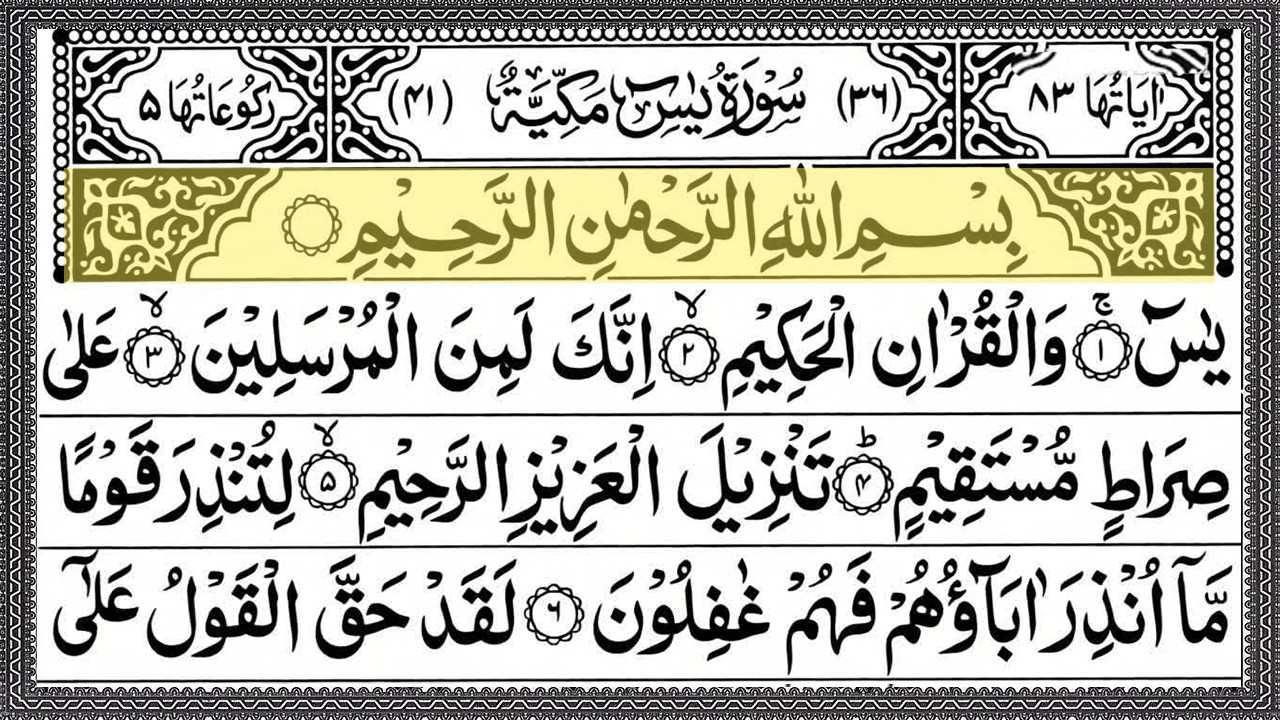 اٰيَاتُهَا ٨٣ (٣٦) سُوْرَةُ يٰسٓ مَكِّيَّةٌ (٤١) رُكُوْعَاتُهَا ٥
بِسْمِ اللّٰهِ الرَّحْمٰنِ الرَّحِيْمِ
يٰسٓ ۚ﴿١﴾ وَالْقُرْاٰنِ الْحَكِيْمِ ۙ﴿٢﴾ اِنَّكَ لَمِنَ الْمُرْسَلِيْنَ ۙ﴿٣﴾ عَلٰى
صِرَاطٍ مُّسْتَقِيْمٍ ؕ﴿٤﴾ تَنْزِيْلَ الْعَزِيْزِ الرَّحِيْمِ ۙ﴿٥﴾ لِتُنْذِرَ قَوْمًا
مَّاۤ اُنْذِرَ اٰبَآؤُهُمْ فَهُمْ غٰفِلُوْنَ ﴿٦﴾ لَقَدْ حَقَّ الْقَوْلُ عَلٰۤى